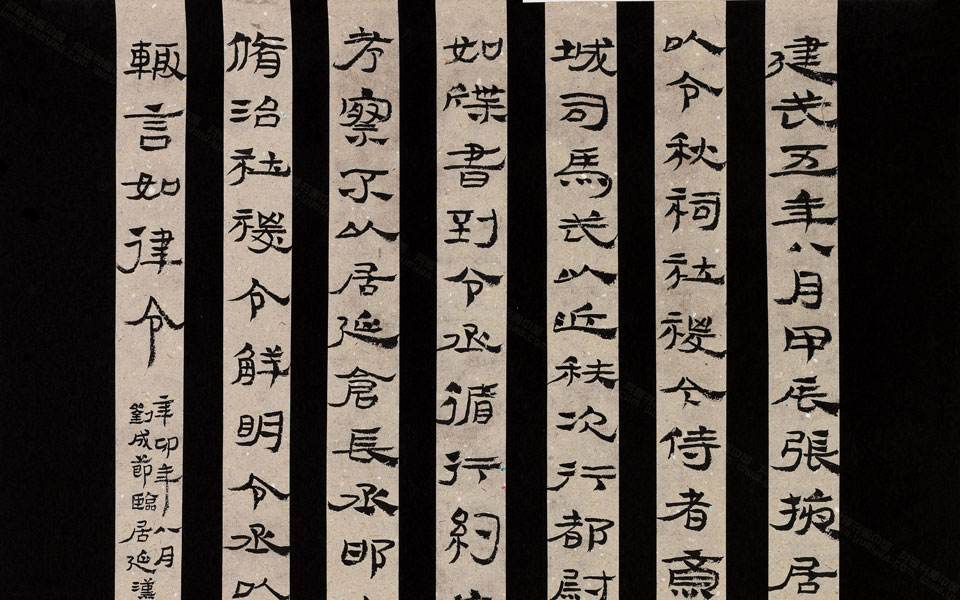 建武五年八月甲辰張掖居
以令秋祠社稷今侍者齋
城司馬武以近秩次行都尉
如牒書到令丞循行約
考察不以居延倉長丞邯
脩治社稷令鮮明令丞以
輒言如律令
辛卯年八月
劉成節臨居延漢